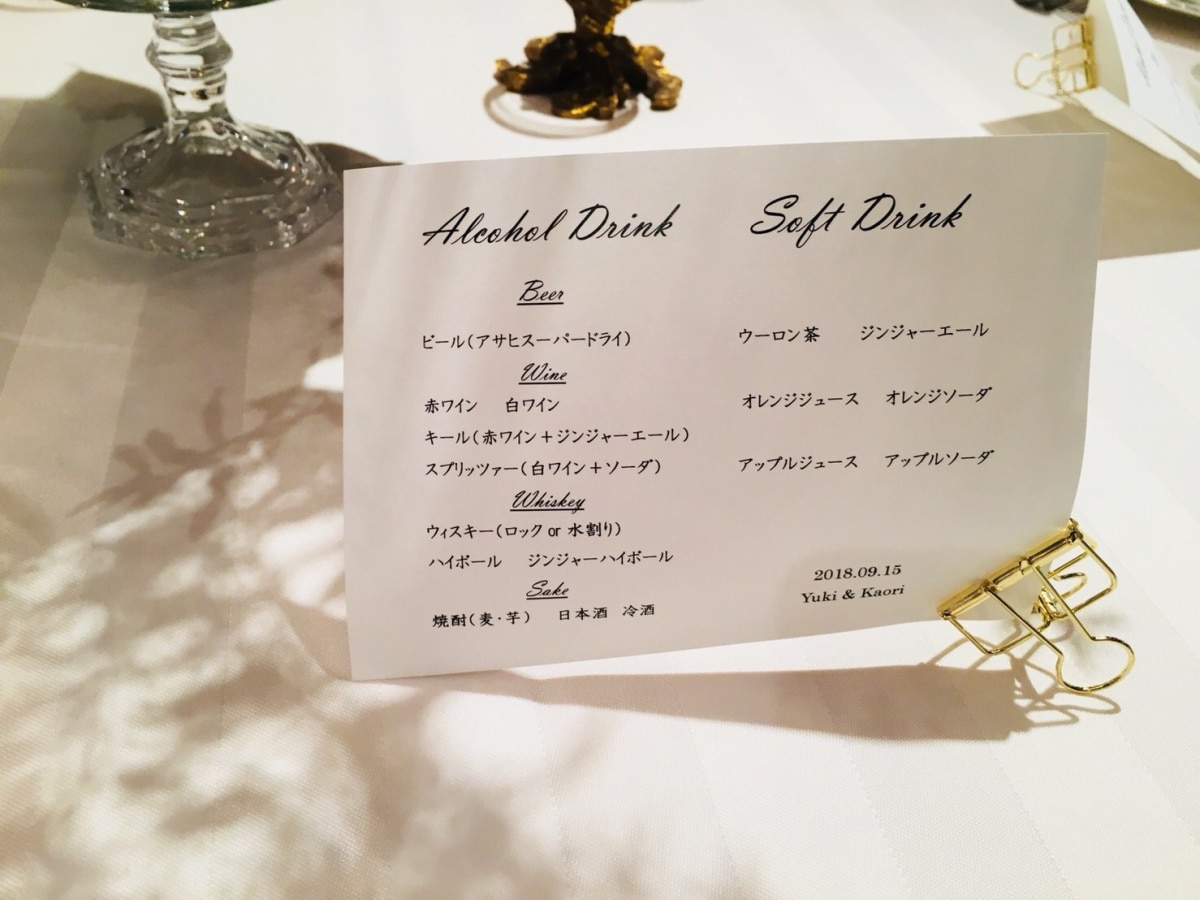 Alcohol Drink
Beer
ビール(アサヒスーパードライ)
Wine
赤ワイン 白ワイン
キール(赤ワイン+ジンジャーエール)
スプリッツァー(白ワイン+ソーダ)
Whiskey
ウィスキー(ロック or 水割り)
ハイボール ジンジャーハイボール
Sake
焼酎(麦・芋) 日本酒 冷酒
Soft Drink
ウーロン茶 ジンジャーエール
オレンジジュース オレンジソーダ
アップルジュース アップルソーダ
2018.09.15
Yuki & Kaori